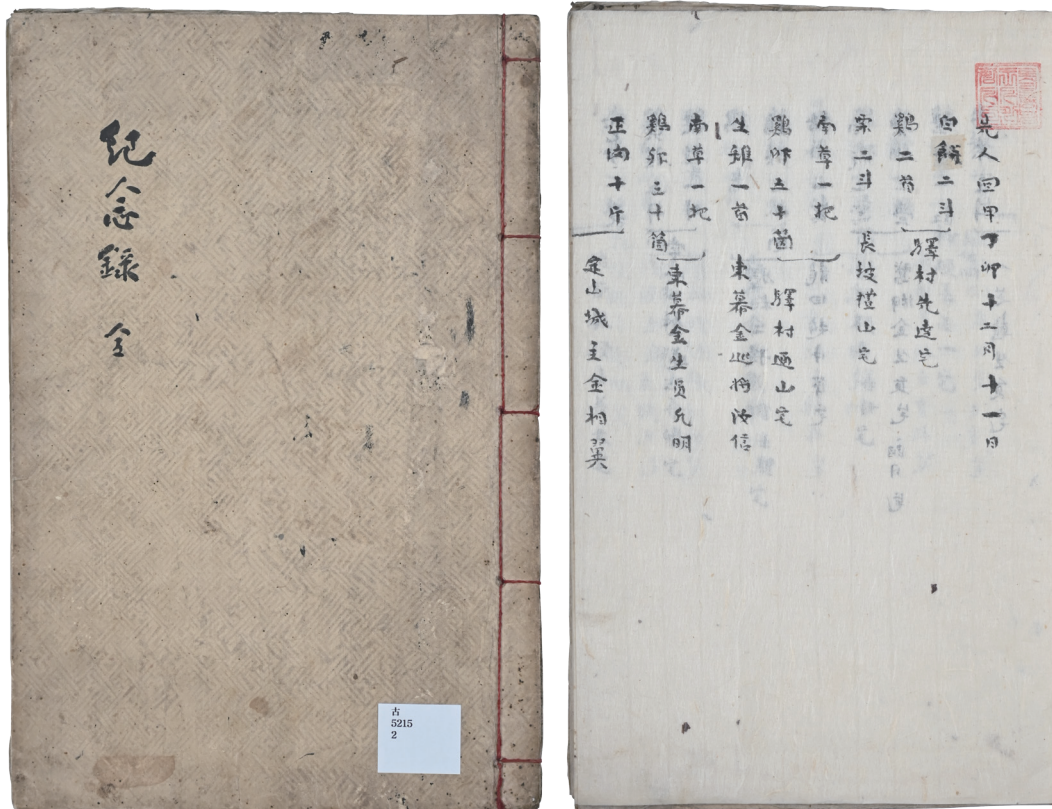 紀念錄 全
古
5215
2
人回甲丁卯十二月十一日
白餠二斗
鷄二首
驛村先達宅
栗二斗 長坡橫山宅
南草一把
鷄卵五十箇
驛村通山宅
生雉一首 東幕金巡將汝信
南草一把
鷄卵三十箇
東幕金生員允明
正肉十斤
定山城主金相翼